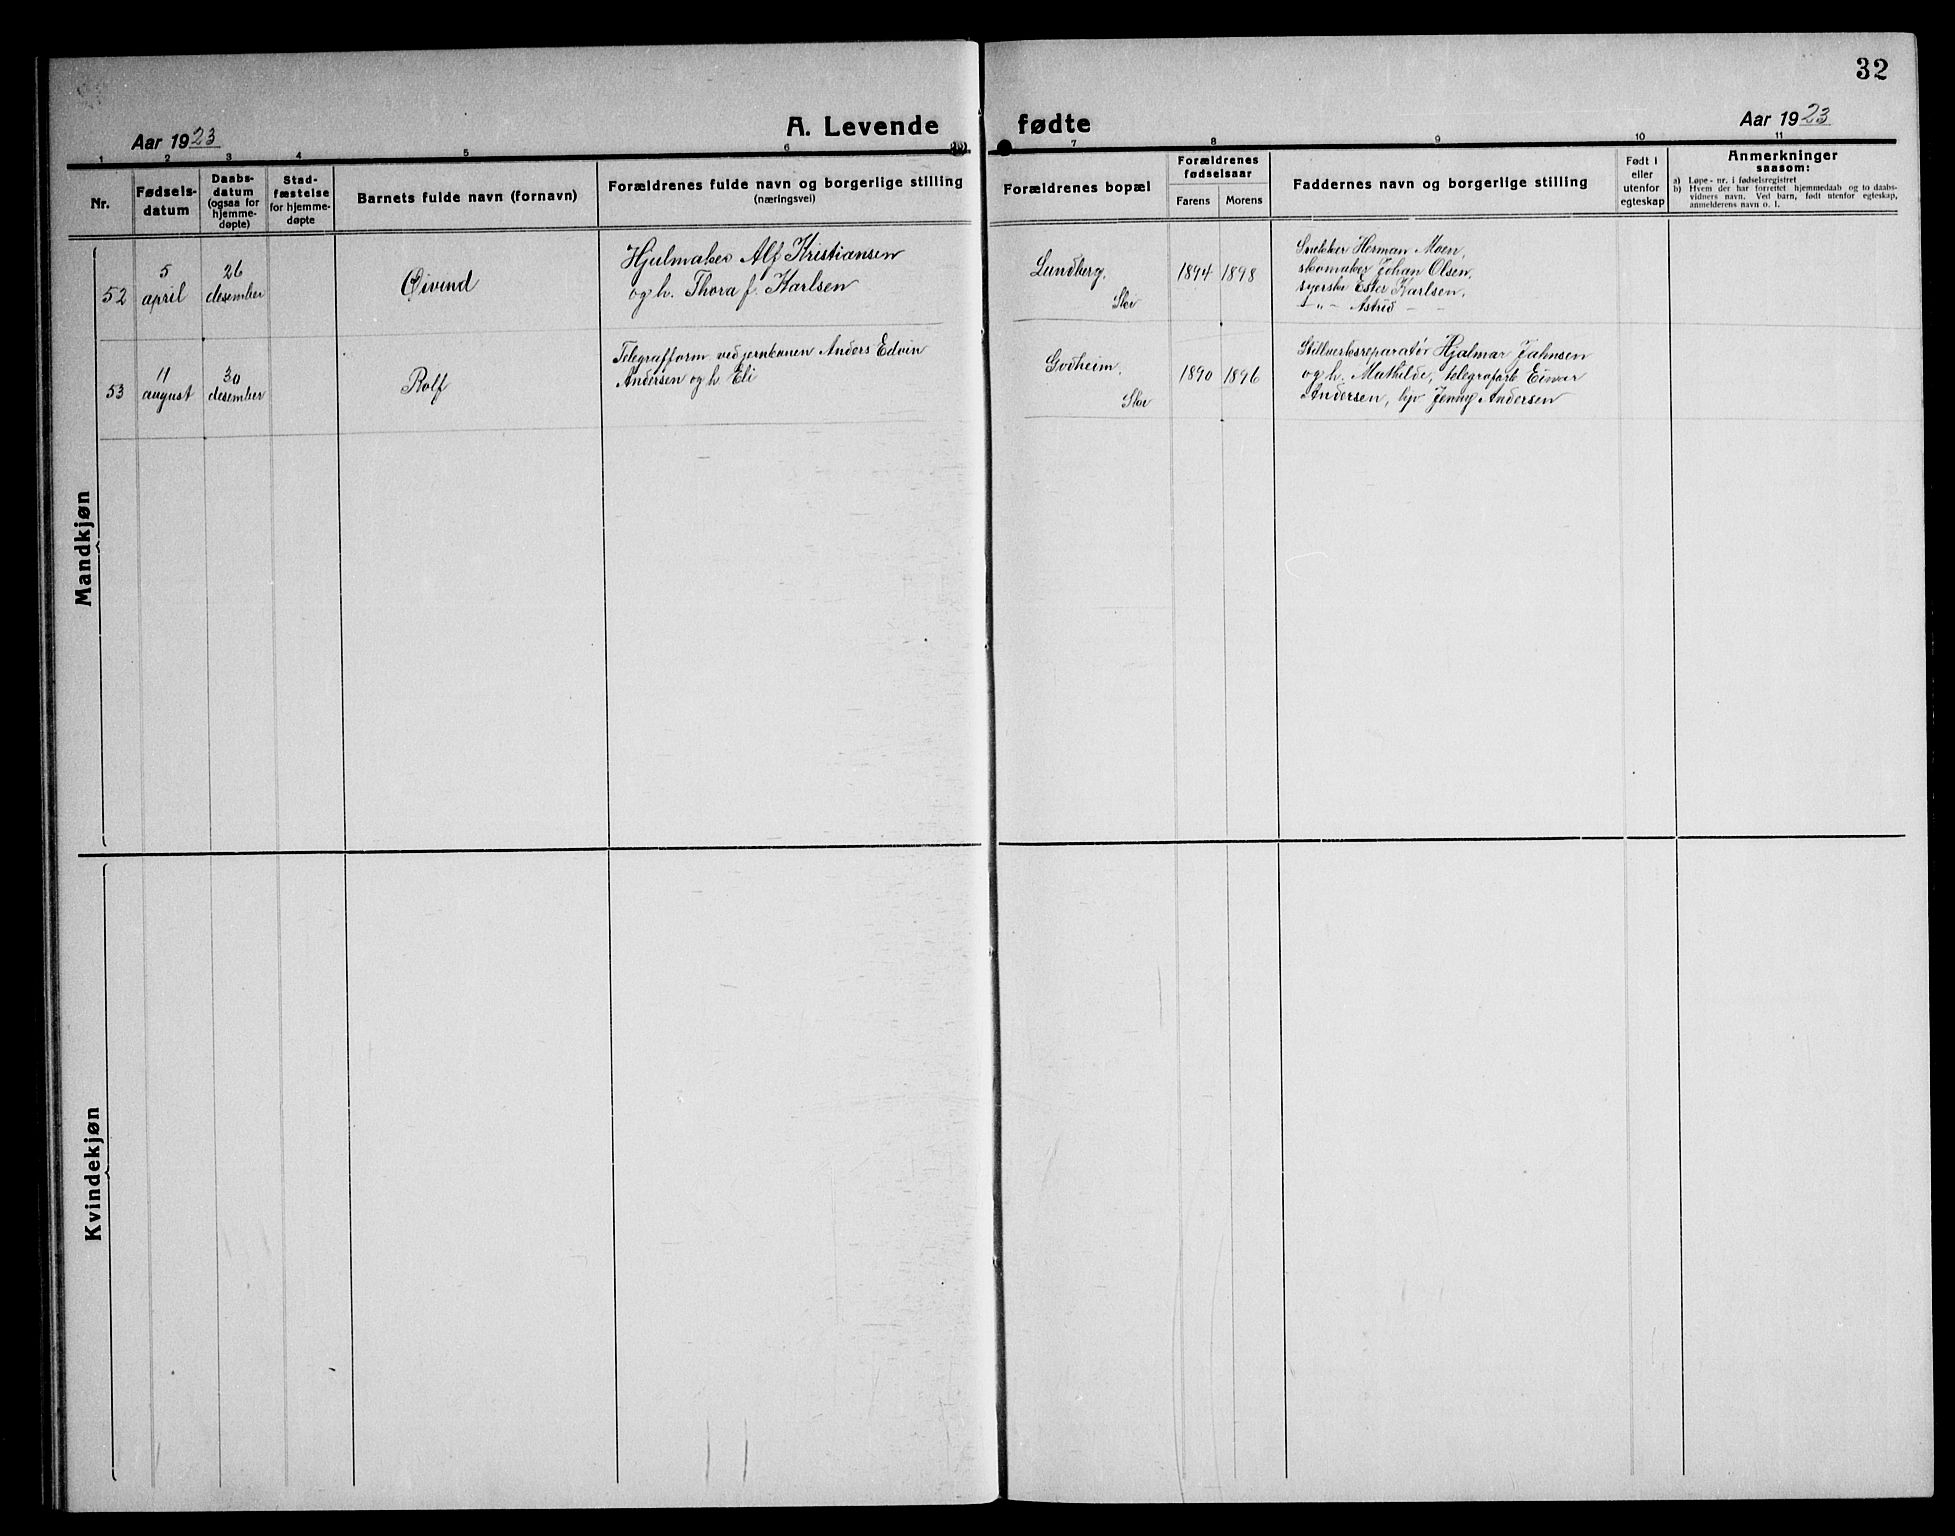 32
Aar 1923
A. Levende
fødte
Aar 1923
1 2 3 4 5 6
7 8 9 10 11
Nr.
Fødsels-
datum
Daabs-
datum
(ogsaa for
hjemme-
døpte)
Stad-
fæstelse
for hjemme-
døpte
Barnets fulde navn (fornavn)
Forældrenes fulde navn og borgerlige stilling
(næringsvei)
Forældrenes bopæl
Forældrenes
fødselsaar
Farens Morens
Faddernes navn og borgerlige stilling
Født i
eller
utenfor
egteskap
Anmerkninger
saasom:
a) Løpe-nr. i fødselsregistret
b) Hvem der har forrettet hjemmedaab og to daabs-
vidners navn. Ved barn, født utenfor egteskap,
anmelderens navn o. l.
Mandkjøn
52
5
april
26
desember
Øivind
Hjulmaker Alf Kristiansen
og h. Thora f. Karlsen
Lundberg,
Skr
1894 1898
Snekker Herman Moen,
skomaker Johan Olsen,
syerske Ester Karlsen,
- " - Astrid - -
53
11
august
30
desember
Rolf
Telegrafform ved jernbanen Anders Edvin
Andersen og h. Eli
Godheim,
Skr
1890 1896
Stillverksreparatør Hjalmar Jahnsen
og h. Mathilde, telegrafarb Einar
Andersen, hp Jenny Andersen
Kvindekjøn